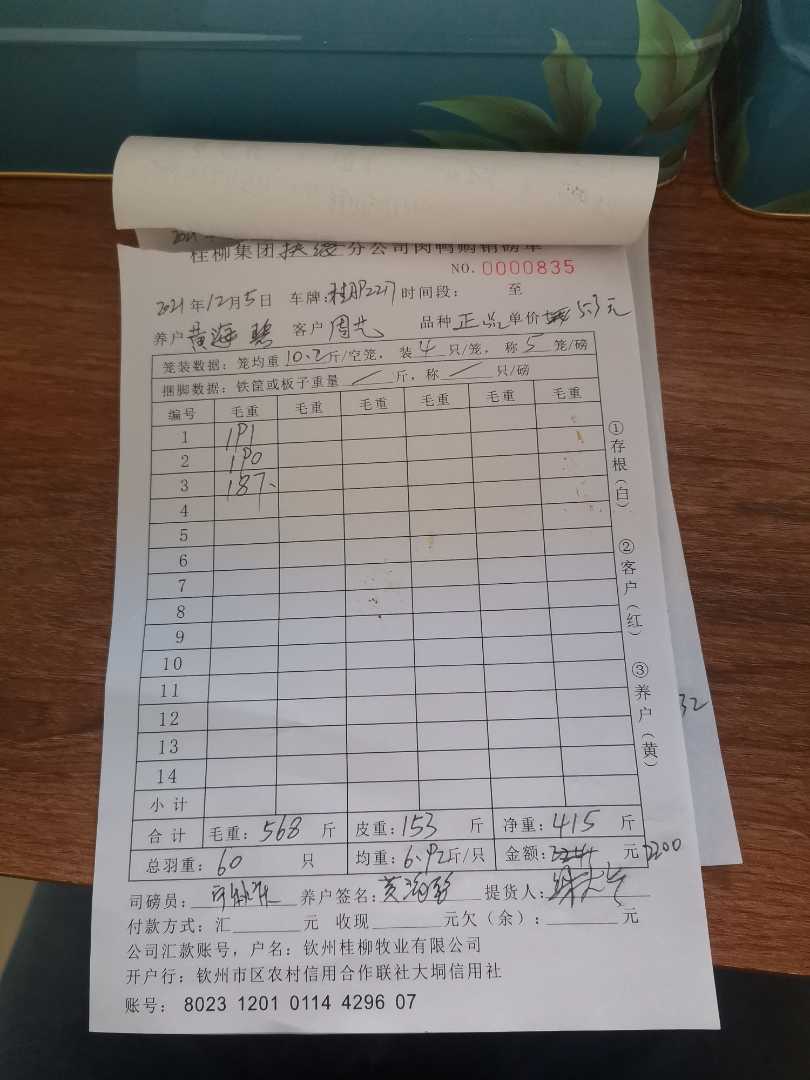 桂柳集团扶绥分公司肉鸭购销磅单
NO. 0000835
2021年12月5日 车牌: 时间段: 至
养户黄海碧 客户周先 品种正品单价5.3元
笼装数据: 笼均重10.2斤/空笼, 装4只/笼, 称5笼/磅
捆脚数据: 铁筐或板子重量/斤, 称/只/磅
编号 毛重 毛重 毛重 毛重 毛重 毛重
1 191
2 190
3 187
4
5
6
7
8
9
10
11
12
13
14
小计
合计 毛重: 568 斤 皮重: 153 斤 净重: 415 斤
总羽重: 60 只 均重: 6.92斤/只 金额: 元 2200
司磅员: 养户签名: 黄海碧 提货人:
付款方式: 汇 元 收现 元欠(余): 元
公司汇款账号, 户名: 钦州桂柳牧业有限公司
开户行: 钦州市区农村信用合作联社大垌信用社
账号: 8023 1201 0114 4296 07
①存根(白)
②客户(红)
③养户(黄)
32